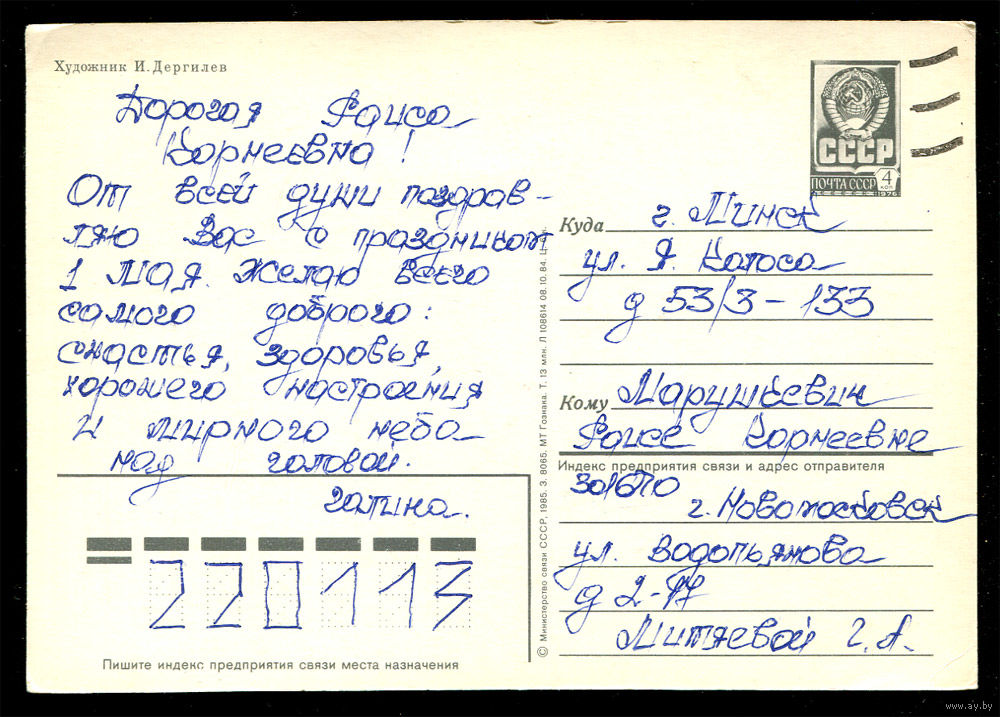 Художник И. Дергилев
Дорогая Раиса
Корнеевна!
От всей души поздрав-
ляю Вас с праздником
1 мая. Желаю всего
самого доброго:
счастья, здоровья,
хорошего настроения
и мирного неба
над головой.
Галина.
220113
Пишите индекс предприятия связи места назначения
© Министерство связи СССР, 1985. З. 8065. МТ Гознака. Т. 13 млн. Л 108614 08.10.84. Ц.
СССР
ПОЧТА СССР 4 коп
1976
Куда г. Минск
ул. Я. Коласа
д 53/3 - 133
Кому Марушкевич
Раисе Корнеевне
Индекс предприятия связи и адрес отправителя
301670
г. Новомосковск
ул. Водопьянова
д 2-17
Митяевой Г. А.
www.ay.by